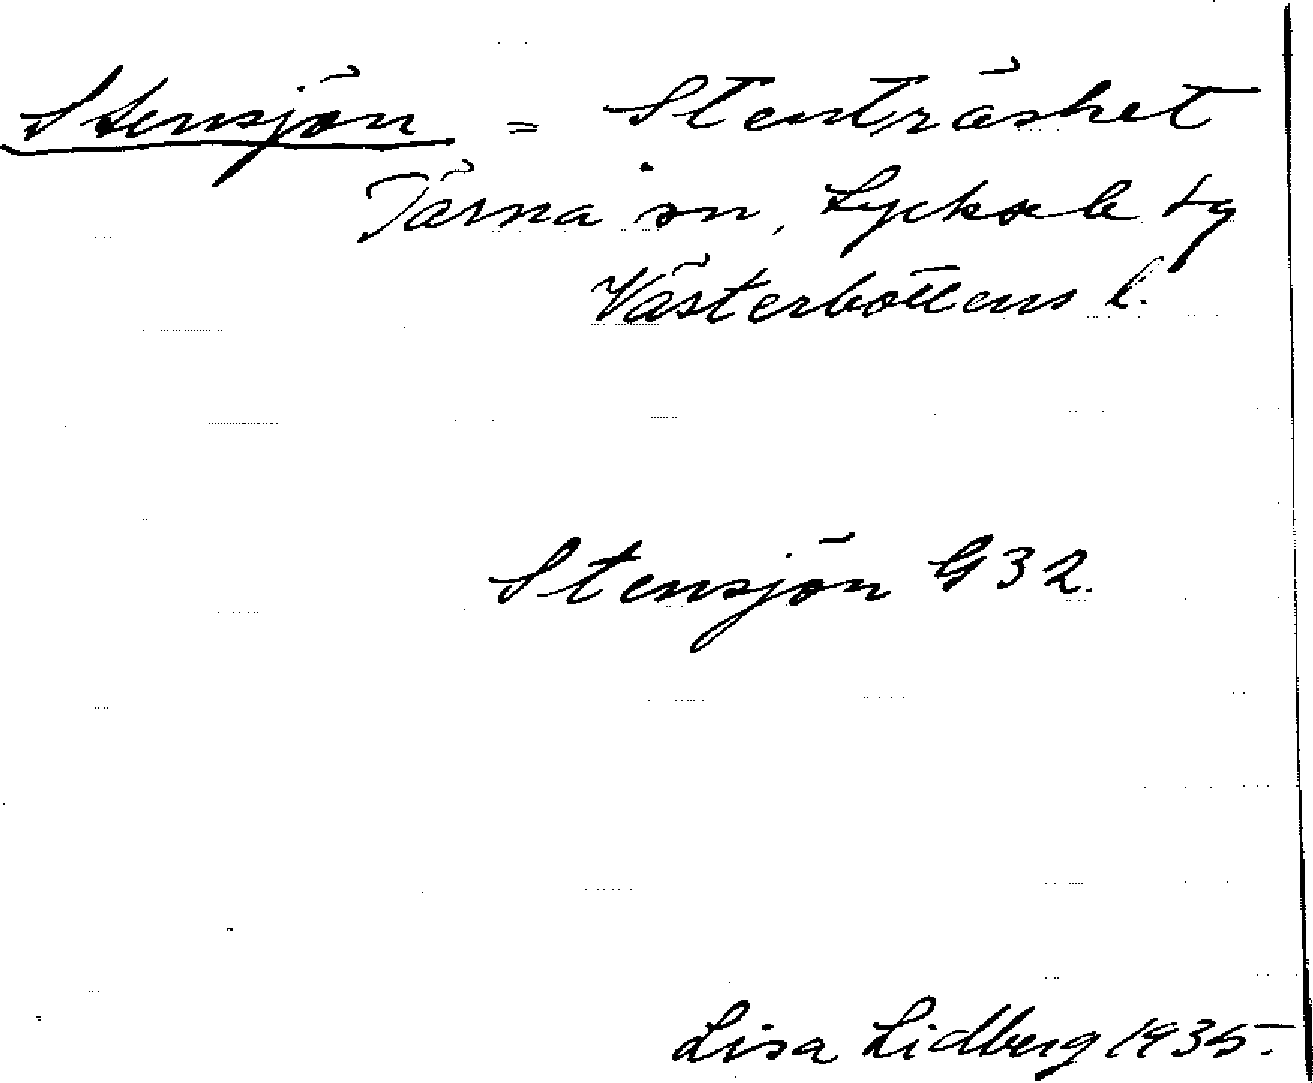 Stensjön = Stenträsket
Tärna sn, Lycksele tg
Västerbottens l.
Stensjön G 32.
Lisa Lidberg 1935.